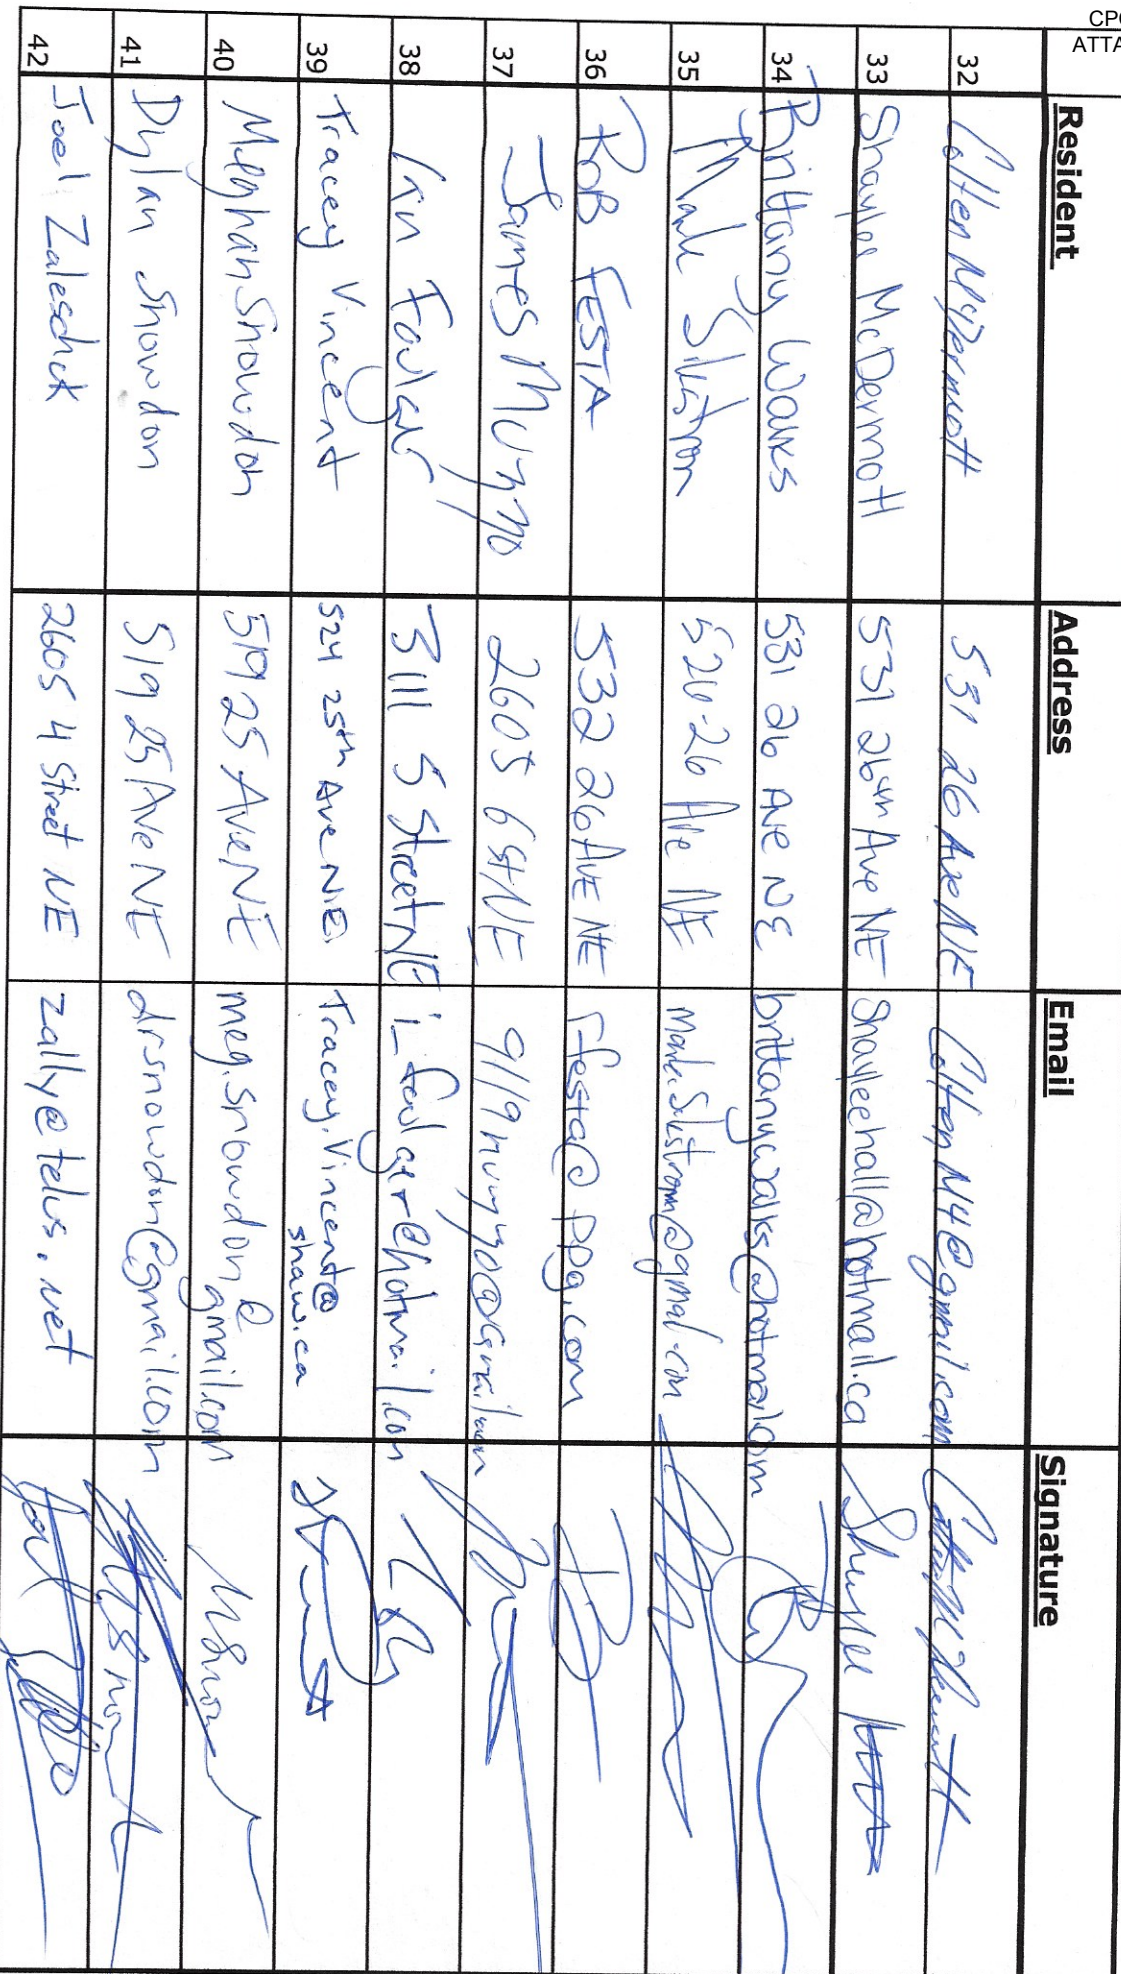 CPC
ATTA
Resident Address Email Signature
32 Colten McDermott 531 26 Ave NE ColtenM4@gmail.com
33 Shaylee McDermott 531 26th Ave NE Shayleehall@hotmail.ca
34 Brittany Walks 531 26 Ave NE brittanywalks@hotmail.com
35 Mark 526-26 Ave NE
36 ROB FESTA 532 26 AVE NE rfesta@ppg.com
37 James Munyo 2605 6 St NE 9119munyo@gmail.com
38 Ian Foulger 3111 5 Street NE i_foulger@hotmail.com
39 Tracey Vincent 524 25th Ave N.E. Tracey.Vincent@
shaw.ca
40 Meghan Snowdon 519 25 Ave NE meg.snowdon@
gmail.com
41 Dylan Snowdon 519 25 Ave NE drsnowdon@gmail.com
42 Joel Zaleschuk 2605 4 Street NE zally@telus.net